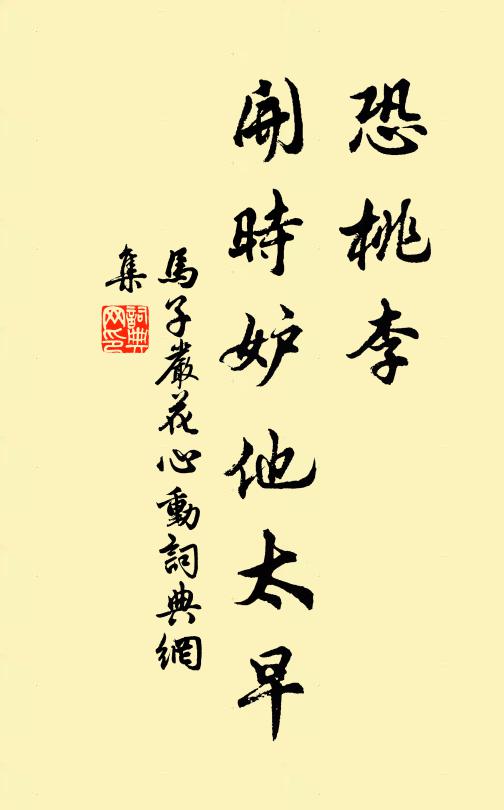 恐桃李
開時妒他太早
馬子嚴花心動詞典網
集
詞典
网印